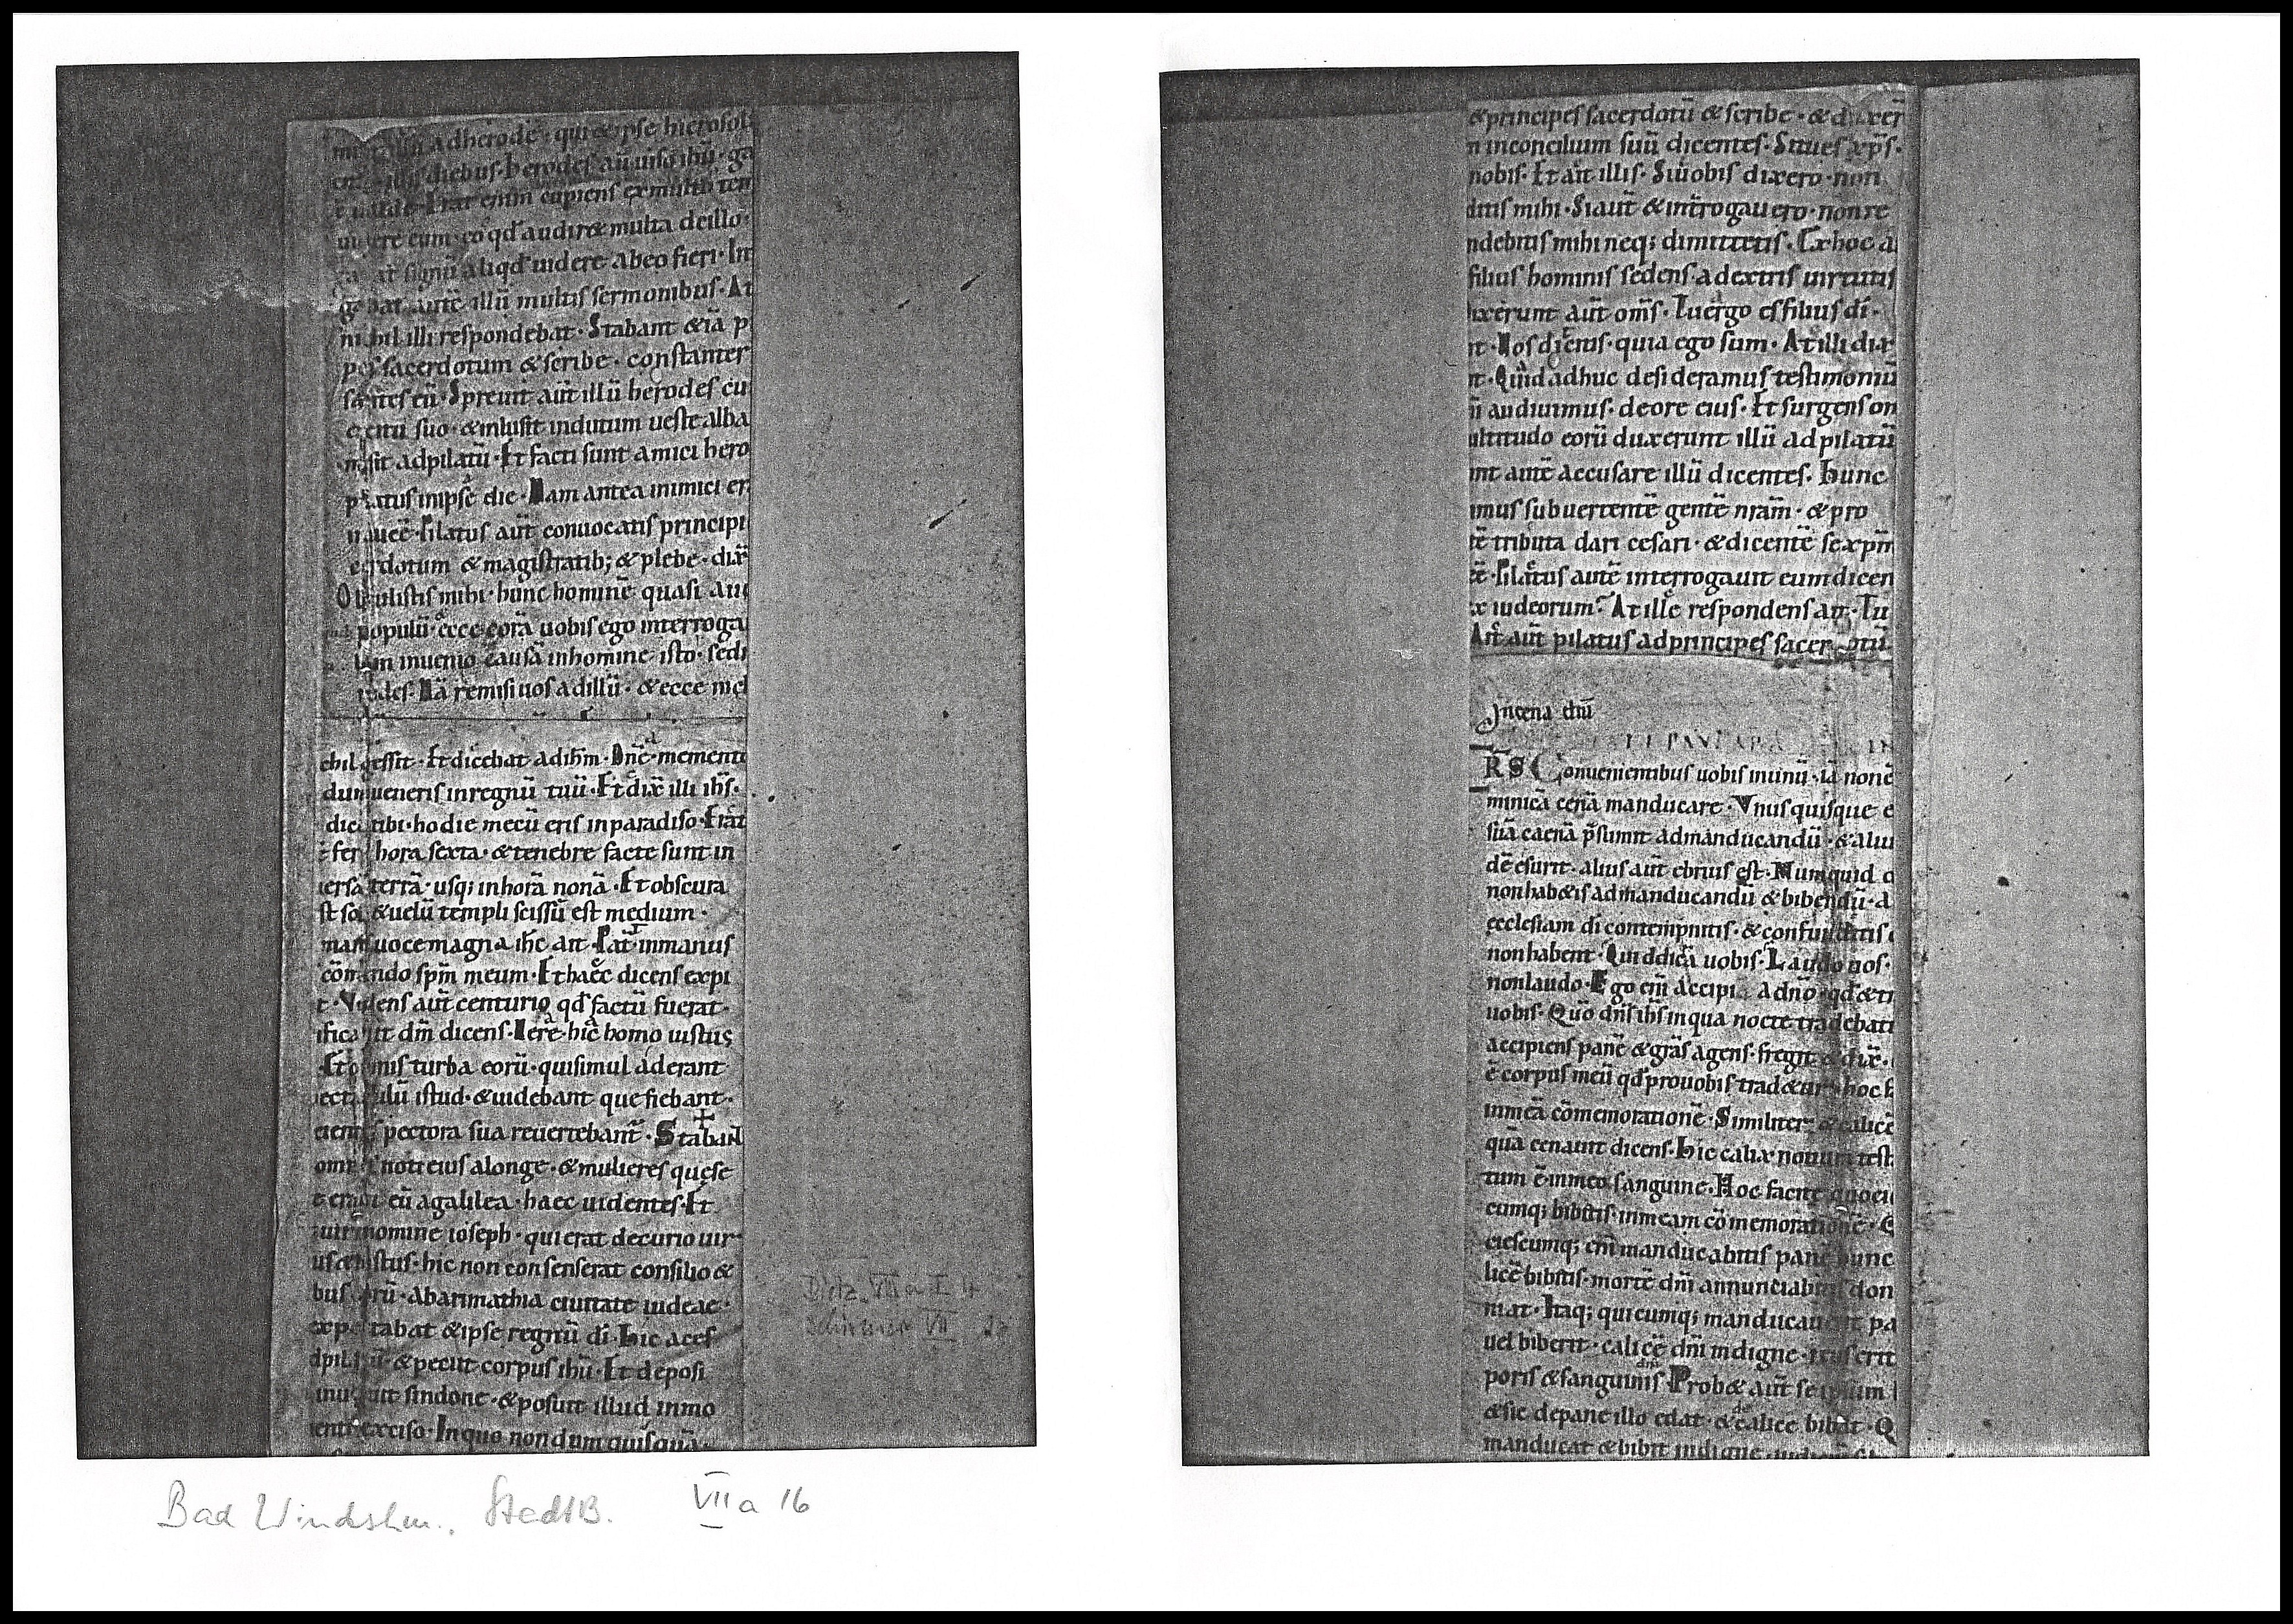 adherodē · qui & ipse hierosoli
diebus · herodes aū uiso ihū · ga
Erat enim cupiens ex multo tem
eum · eo qd̄ audir& multa de illo ·
signū aliqd̄ uidere ab eo fieri · In
autē illū multis sermonibus · At
nihil illi respondebat · Stabant &iā p
sacerdotum & scribe · constanter
eū · Spreuit aūt illū herodes cu
suo · & inlusit indutum ueste alba
ad pilatū · Et facti sunt amici hero
in ipsa die · Nam antea inimici er
Pilatus aūt conuocatis principi
dotum & magistratib; & plebe · dix̄
mihi · hunc hominē quasi au
populū · & ecce corā uobis ego interroga
inuenio causā in homine isto · sed
Nā remisi uos ad illū · & ecce nic
chil gessit · Et dicebat ad ihm̄ · Dnē memento
dum ueneris in regnū tuū · Et dix̄ illi ihs̄ ·
dico tibi · hodie mecū eris in paradiso · Erat
fer hora sexta · & tenebre facte sunt in
iersā terrā · usq; in horā nonā · Et obscura
st sol & uelū templi scissū est medium ·
mans uoce magna ihc̄ ait · Pat̄ in manus
cōmendo spm̄ meum · Et haec dicens expi
t · Videns aūt centurio qd̄ factū fuerat ·
ificauit dm̄ dicens · Uere hic homo iustus
Et omnis turba eorū · qui simul aderant
istud · & uidebant que fiebant ·
pectora sua reuertebant̄ · Stabant
noti eius alonge · & mulieres que se
eū agalilea · haec uidentes · Et
uir nomine ioseph · qui erat decurio uir
hic non consenserat consilio &
Abarimathia ciuitate iudeae ·
tabat & ipse regnū dī · Hic acces
& peciit corpus ihū · Et deposi
sindone · & posuit illud in mo
exciso · In quo nondum quisquā
Bad Windshm., StadtB. VII a 16
& principes sacerdotū & scribe · & duxer̄
n in concilium suū dicentes · Si tu es xp̄s ·
nobis · Et ait illis · Si uobis dixero · non
ditis mihi · Si aūt & int̄rogauero · non re
ndebitis mihi neq; dimittetis · Ex hoc a
filius hominis sedens · adextris uirtutis
ixerunt aūt om̄s · Tu ergo es filius dī ·
nt · Uos dicitis · quia ego sum · At illi dix
nt · Quid adhuc desideramus testimoniū
audiuimus · de ore eius · Et surgens om
ultitudo eorū duxerunt illū ad pilatū
nt autē accusare illū dicentes · Hunc
imus subuertentē gentē nr̄am · & pro
tē tributa dari cesari · & dicentē se xpm̄
Pilatus autē interrogauit eum dicen
x iudeorum? At ille respondens ait · Tu
Ait aūt pilatus ad principes sacerdotū
In cena dni
RS Conuenientibus uobis in unū · iā non ē
minicā cenā manducare · Vnusquisque e
suā caenā p̄sumit ad manducandū · & aliu
dē esurit · alius aūt ebrius est · Numquid d
non hab&is ad manducandū & bibendū · a
ecclesiam dī contempnitis · & confunditis
non habent · Quid dicā uobis · Laudo uos ·
non laudo · Ego enī accipi a dn̄o · qd̄ & tr
uobis · Qūo dns̄ ihs̄ in qua nocte tradebat
accipiens panē & gr̄as agens · fregit & dix̄ ·
ē corpus meū qd̄ pro uobis trad&ur · hoc f
in meā cōmemorationē · Similiter & calicē
quā cenauit dicens · Hic calix nouum test
tum ē in meo sanguine · Hoc facite quoci
cumq; bibitis · in meam cōmemorationē · Q
ciescumq; enī manducabitis panē hunc
licē bibitis · mortē dnī annunciabitis don
niat · Itaq; quicumq; manducauerit pa
uel biberit · calicē dnī indigne · reus erit
poris & sanguinis dni · Prob& aūt se ipsum
& sic de pane illo edat · & de calice bibat · Q
manducat & bibit indigne · iudiciū